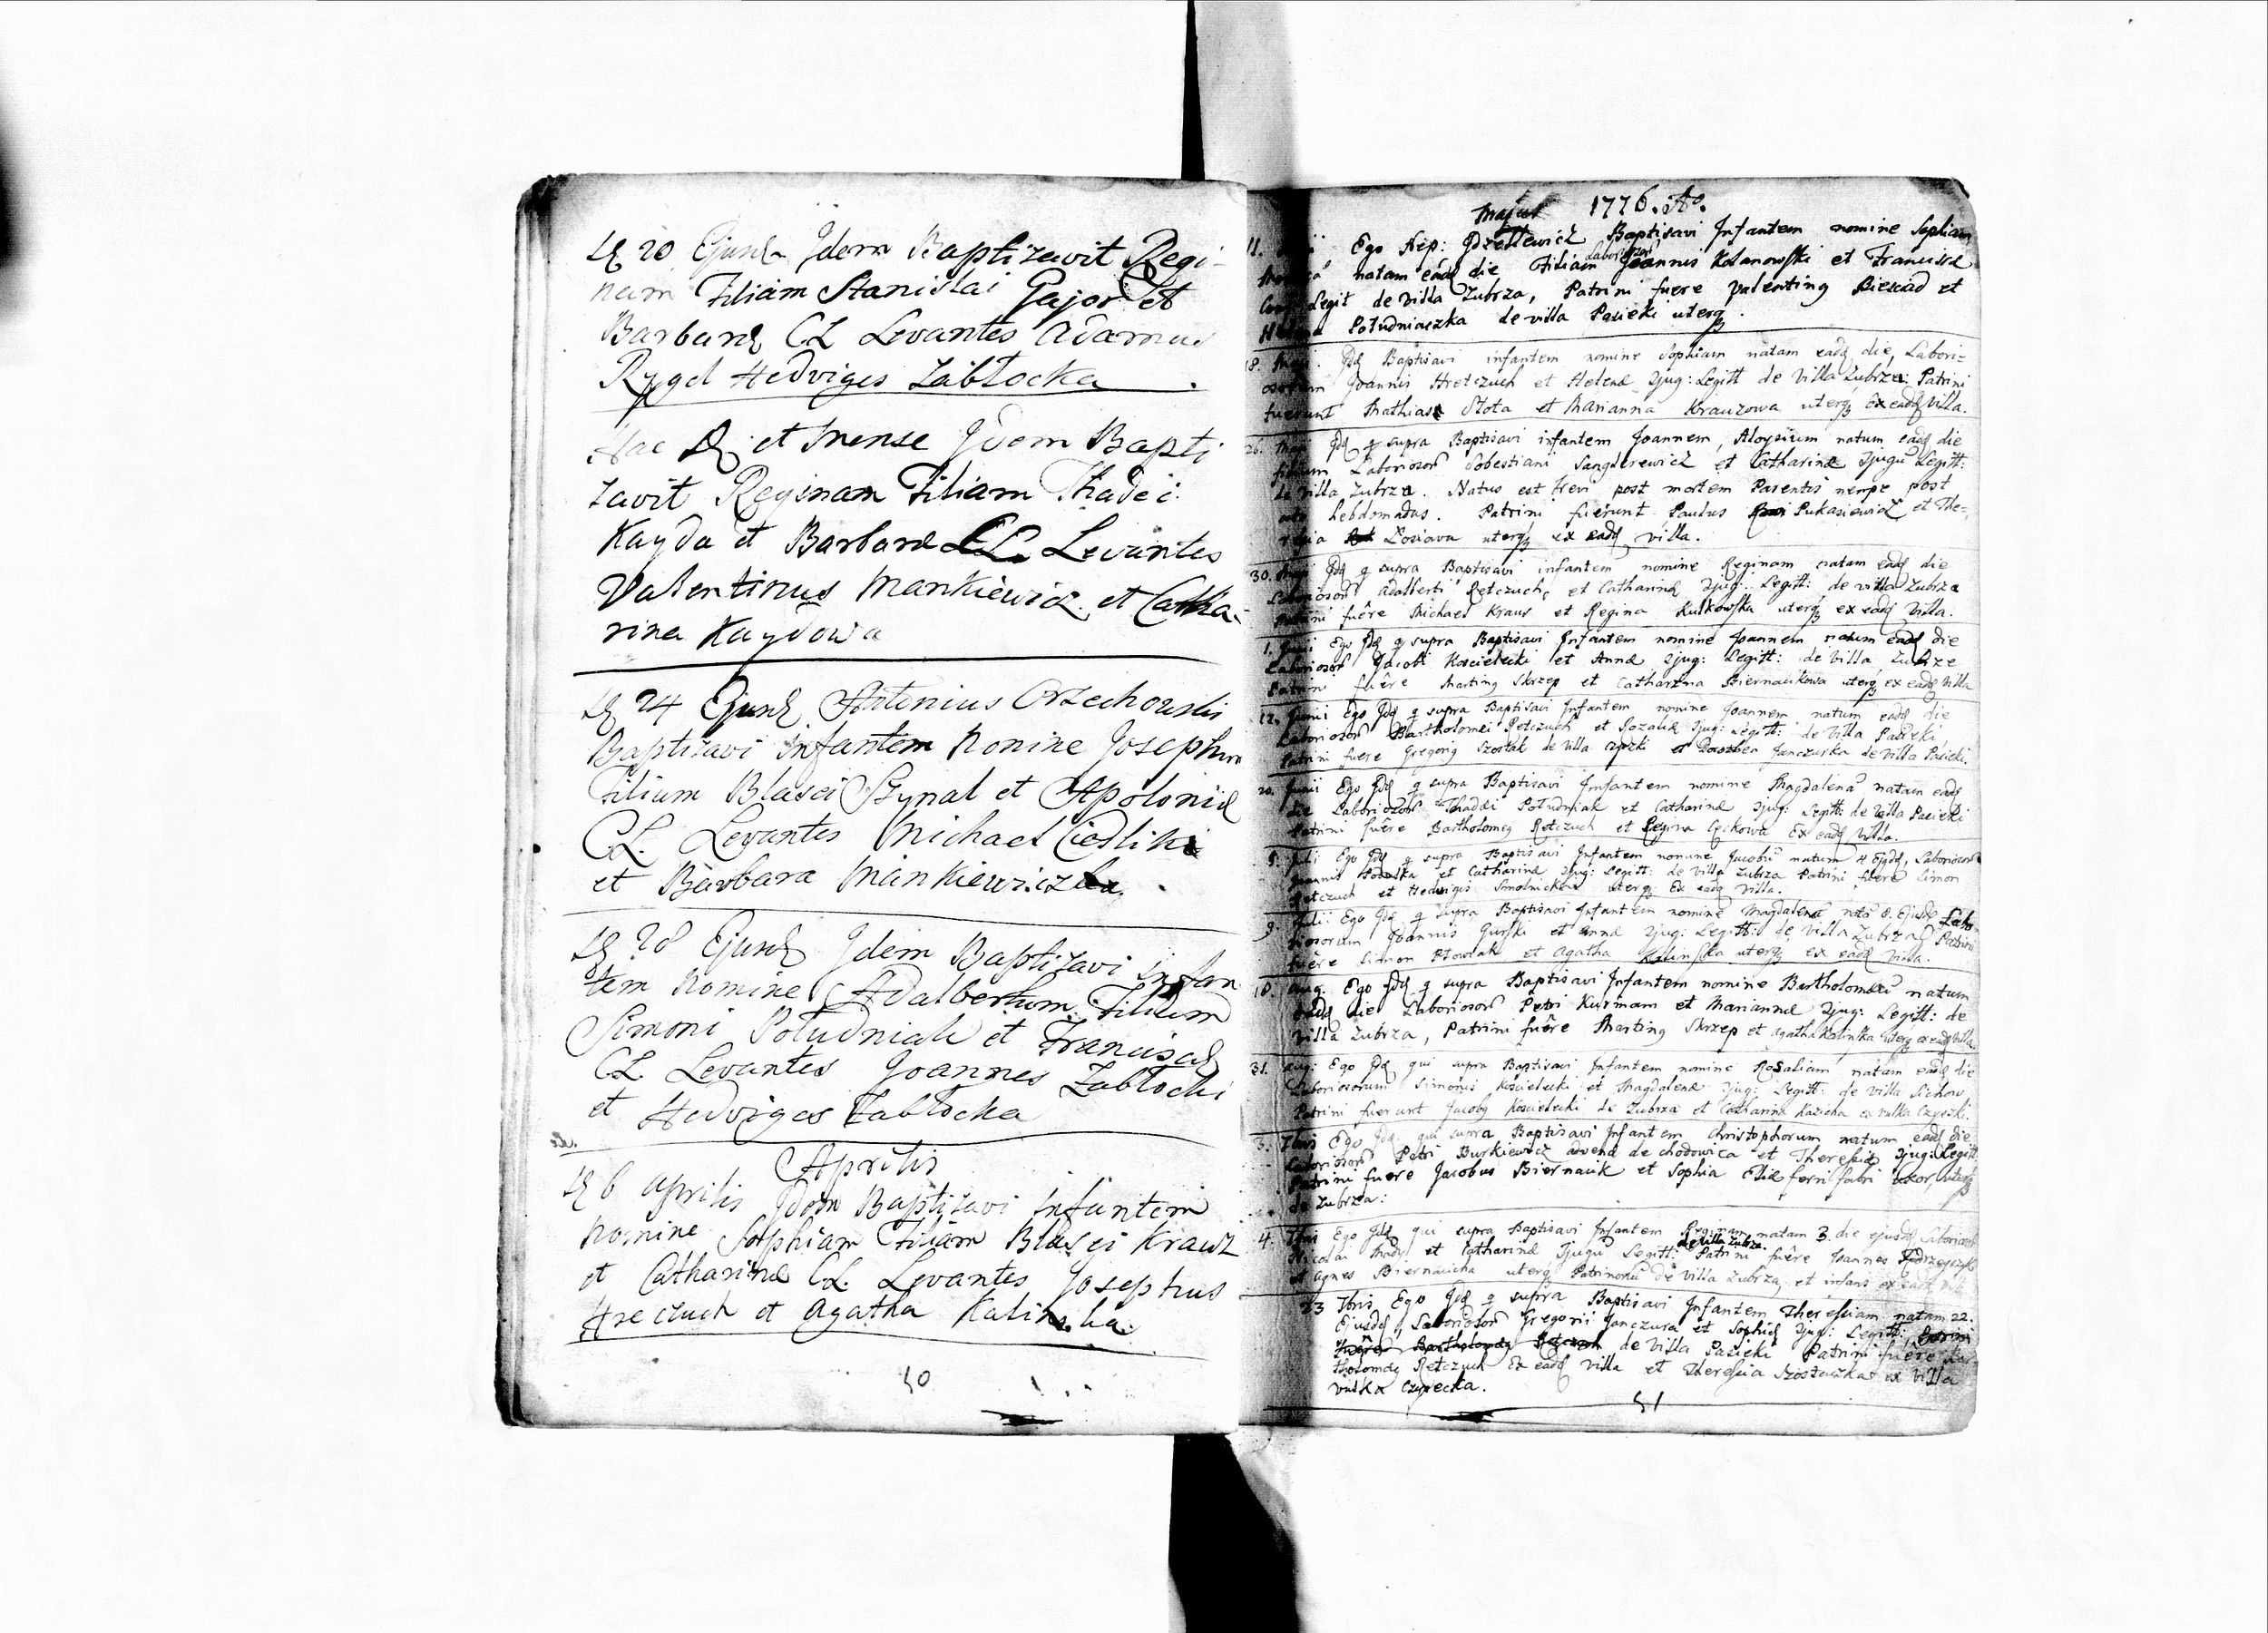 20 Ejusd Idem Baptizavit Regi-
nam Filiam Stanislai Gajor et
Barbaræ CL Levantes Adamus
Rygel Hedviges Zabłocka
Hac D et Mense Idem Bapti
zavit Reginam Filiam Thadei
Kayda et Barbaræ CL. Levantes
Valentinus Mankiewicz et Catha-
rina Kaydowa
24 Ejusd Antonius Orzechowski
Baptizavi Infantem Nomine Josephum
Filium Blasei Szynal et Apoloniæ
CL. Levantes Michael Cieslik
et Barbara Mankiewiczka.
28 Ejusd Idem Baptizavi infan
tem Nomine Adalbertum Filium
Simoni Południak et Franciscæ
CL Levantes Joannes Zabłocki
et Hedviges Zabłocka
Aprilis
6 Aprilis Idem Baptizavi infantem
Nomine Sophiam Filiam Blasei Krawz
et Catharinæ CL. Levantes Josephus
Hreczuch et Agatha Kalinska
50
Majus 1776. Ao.
11. Ego Baptisavi Infantem nomine Sophiam
natam eadq die Filiam Joannis Kolanowski et Franciscæ
Legit de villa Zubrza, Patrini fuere Valenting Biernad et
Południaczka de villa Pasieki uterq.
18. Idq Baptisavi infantem nomine Sophiam natam eadq die, Labori-
Joannis Hretczuch et Helenæ Jjug: Legitt de villa Zubrza: Patrini
fuerunt Mathias Słota et Marianna Krauzowa uterq ex eadq villa.
26. Idq q supra Baptisavi infantem Joannem, Aloysium natum eadq die
filium Laboriosor Sobestiani Sanglerewicz et Catharinæ Jjugu Legitt:
de villa Zubrza. Natus est brevi post mortem Parentis nempe post
hebdomadas. Patrini fuerunt Paulus Łukasiewicz et The-
resia Łosiava uterq ex eadq villa.
30. Idq q supra Baptisavi infantem nomine Reginam natam eadq die
Laboriosor Adalberti Retczuch, et Catharinæ Jjug: Legitt: de villa Zubrza
Patrini fuêre Michael Kraus et Regina Kulkowska uterq ex eadq villa.
1. Junii Ego Idq q supra Baptisavi Infantem nomine Joannem natum eadq die
Laboriosor Jacobi Koscielecki et Annæ Jjug: Legitt: de villa Zubrze
Patrini fuêre Marting Skrzep et Catharina Biernaukowa uterq ex eadq villa
12. Junii Ego Idq q supra Baptisavi Infantem nomine Joannem natum eadq die
Laboriosor Bartholomei Retczuch et Rozaliæ Jjug: Legitt: de villa Pasieki
Patrini fuere Gregorig Szostak de villa et Dorothea Janczurka de villa Pasieki.
20. Junii Ego Idq q supra Baptisavi Infantem nomine Magdalenã natam eadq
die Laboriosor Thadæi Południak et Catharinæ Jjug: Legitt: de villa Pasieki
Patrini fuêre Bartholomeg Retczuch et Regina Ex eadq villa.
5. Julii Ego Idq q supra Baptisavi Infantem nomine Jacobũ natum 4 Ejqdq, Laboriosor
Joannis et Catharinæ Jjug: Legitt: de villa Zubrza Patrini fuêre Simon
Retczuch et Hedwigis Smolnickowa uterq: Ex eadq villa.
9. Julii Ego Idq q supra Baptisavi Infantem nomine Magdalenã 8. Ejusdq Labo-
riosorum Joannis Gurski et Annæ Jjug: Legitt: de villa Zubrza Patrini
fuêre Simon et Agatha Kalinska uterq ex eadq villa.
18. Aug. Ego Idq q supra Baptisavi Infantem nomine Bartholomæũ natum
eadq die Laboriosor Petri Kurmam et Mariannæ Jjug: Legitt: de
villa Zubrza, Patrini fuêre Marting Skrzep et Agatha Kalinska uterq ex eadq villa
31. Aug: Ego Idq qui supra Baptisavi Infantem nomine Rosaliam natam eadq die
Laboriosorum Simonis Koscielecki et Magdalenæ Jjug: Legitt: de villa Sichow
Patrini fuerunt Jacobg Koscielecki de Zubrza et Catharina Kazicha ex Vulka Czyszki.
3. 7bris Ego Idq qui supra Baptisavi Infantem Christophorum natum eadq die
Laboriosor Petri Burkiewicz advenæ de Chodowica et Theresiæ Jjug: Legitt:
Patrini fuere Jacobus Biernacik et Sophia Eliæ ferri fabri uxor, uterq
de Zubrza:
4. 7bris Ego Idq qui supra Baptisavi Infantem Reginam natam 3. die ejusdq Laboriosor
de villa Zubrza
Nicolai et Catharinæ Jjugu Legitt: Patrini fuêre Joannes
et Agnes Biernacicha uterq Patrinorũ de villa Zubrza, et infans ex eadq
23 7bris Ego Idq q supra Baptisavi Infantem Theresiam natam 22.
Ejusdq, Laboriosor Gregorii Janczura et Sophiæ Jjug: Legitt:
de villa Pasieki Patrini fuêre Bar-
tholomeg Retczuch Ex eadq villa et Theresia Szostaczka ex villa
Vulka Czyzecka.
51